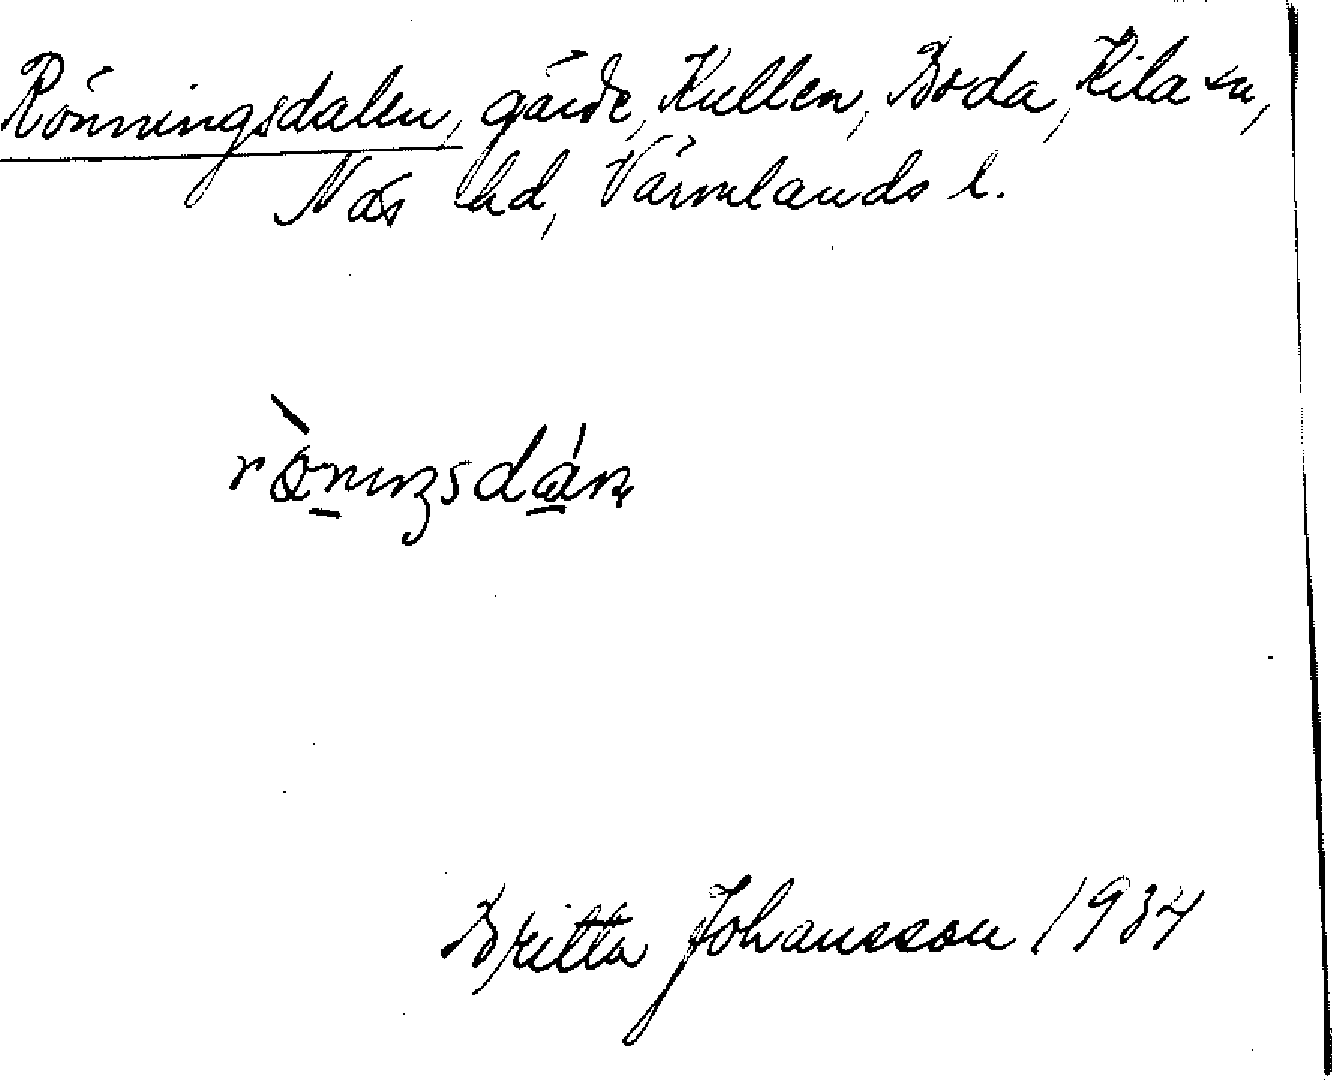 Rönningsdalen, gärde, Kullen, Boda, Kila sn,
Näs hd, Värmlands l.
Britta Johansson 1934